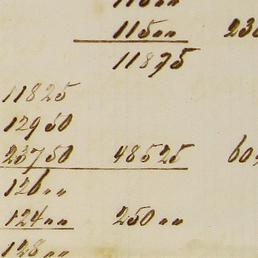 115 " " 23
11875
11825
12950
23750 48525 60
126 " "
124 " " 250 " "
128 " "